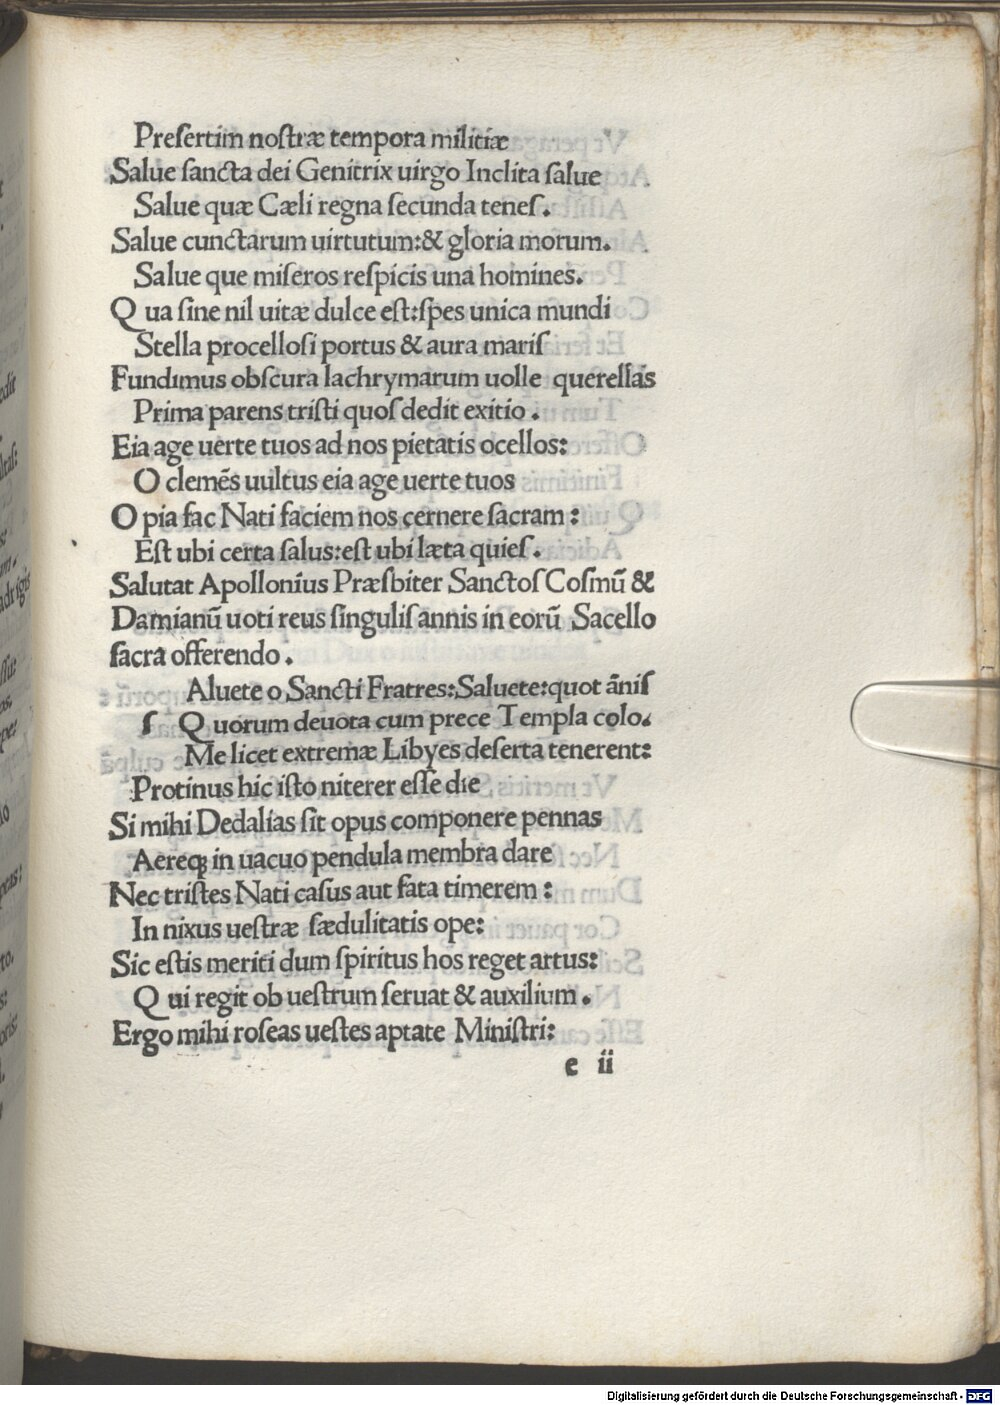 Preſertim noſtræ tempora militiæ
Salue ſancta dei Genitrix uirgo Inclita ſalue
Salue quæ Cæli regna ſecunda teneſ.
Salue cunctarum uirtutum:& gloria morum.
Salue que miſeros reſpicis una homines.
Q ua ſine nil uitæ dulce eſt:ſpes unica mundi
Stella procelloſi portus & aura mariſ
Fundimus obſcura lachrymarum uolle querellas
Prima parens triſti quoſ dedit exitio .
Eia age uerte tuos ad nos pietatis ocellos:
O clemēs uultus eia age uerte tuos
O pia fac Nati faciem nos cernere ſacram :
Eſt ubi certa ſalus:eſt ubi læta quieſ .
Salutat Apollonius Præſbiter Sanctoſ Coſmū &
Damianū uoti reus ſinguliſ annis in eorū Sacello
ſacra offerendo .
Aluete o Sancti Fratres:Saluete:quot āniſ
ſ Q uorum deuota cum prece Templa colo.
Me licet extremæ Libyes deſerta tenerent:
Protinus hic iſto niterer eſſe die
Si mihi Dedalias ſit opus componere pennas
Aereqꝫ in uacuo pendula membra dare
Nec triſtes Nati caſus aut fata timerem :
In nixus ueſtræ ſædulitatis ope:
Sic eſtis meriti dum ſpiritus hos reget artus:
Q ui regit ob ueſtrum ſeruat & auxilium .
Ergo mihi roſeas ueſtes aptate Miniſtri:
e ii
Digitalisierung gefördert durch die Deutsche Forschungsgemeinschaft - DFG